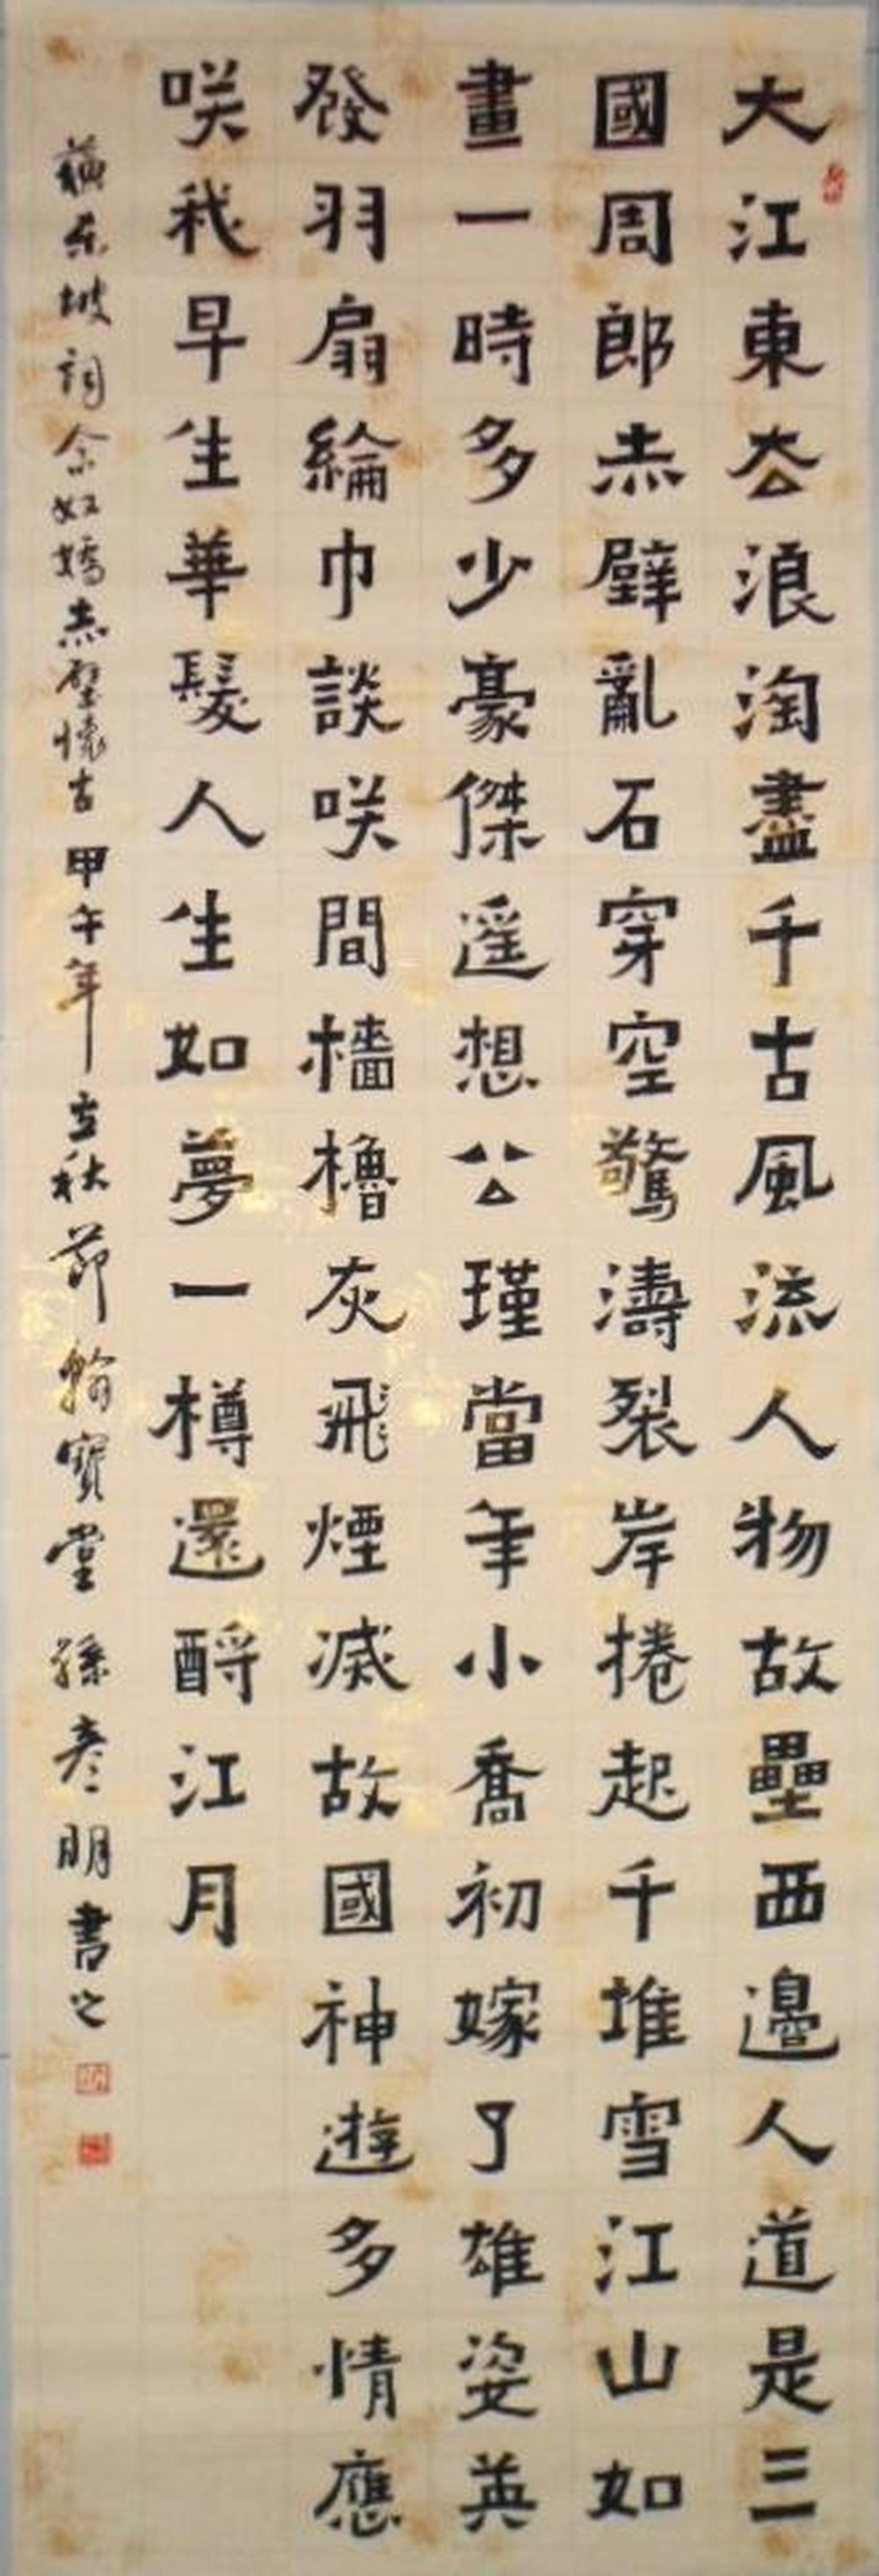 大江東去浪淘盡千古風流人物故壘西邊人道是三
國周郎赤壁亂石穿空驚濤裂岸捲起千堆雪江山如
畫一時多少豪傑遥想公瑾當年小喬初嫁了雄姿英
發羽扇綸巾談咲間檣櫓灰飛煙滅故國神遊多情應
咲我早生華髮人生如夢一樽還酹江月
蘇东坡詞念奴嬌赤壁懷古甲午年立秋節翰寶堂孫彦明書之